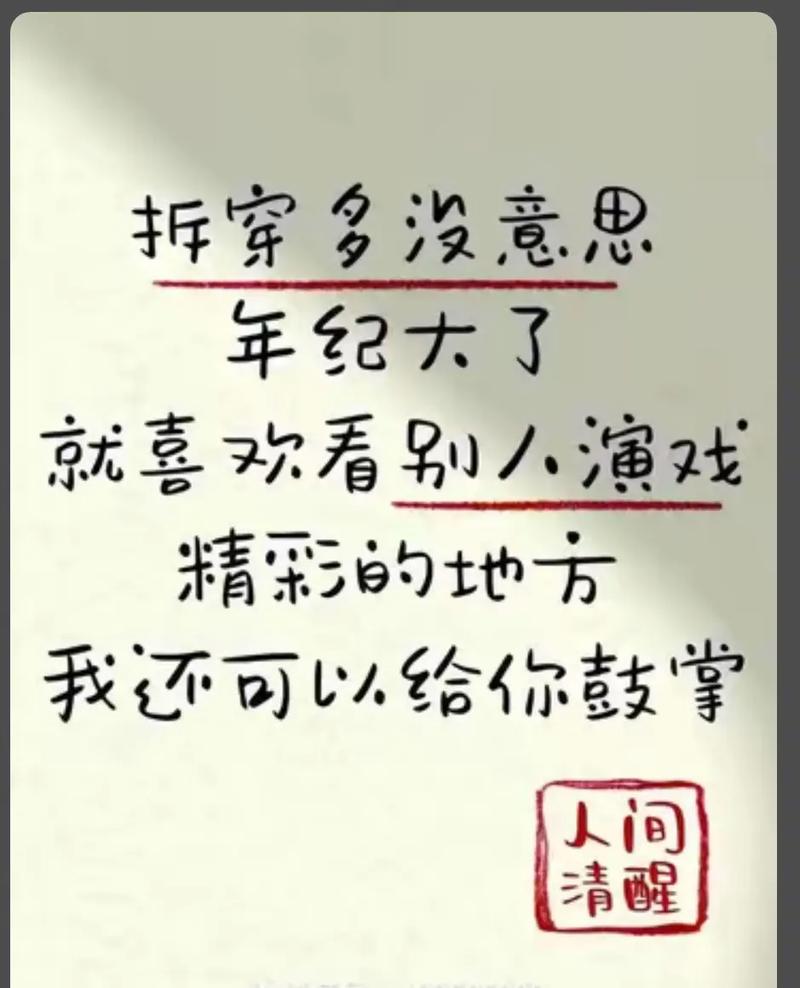 拆穿多没意思
年纪大了
就喜欢看别人演戏
精彩的地方
我还可以给你鼓掌
人间
清醒